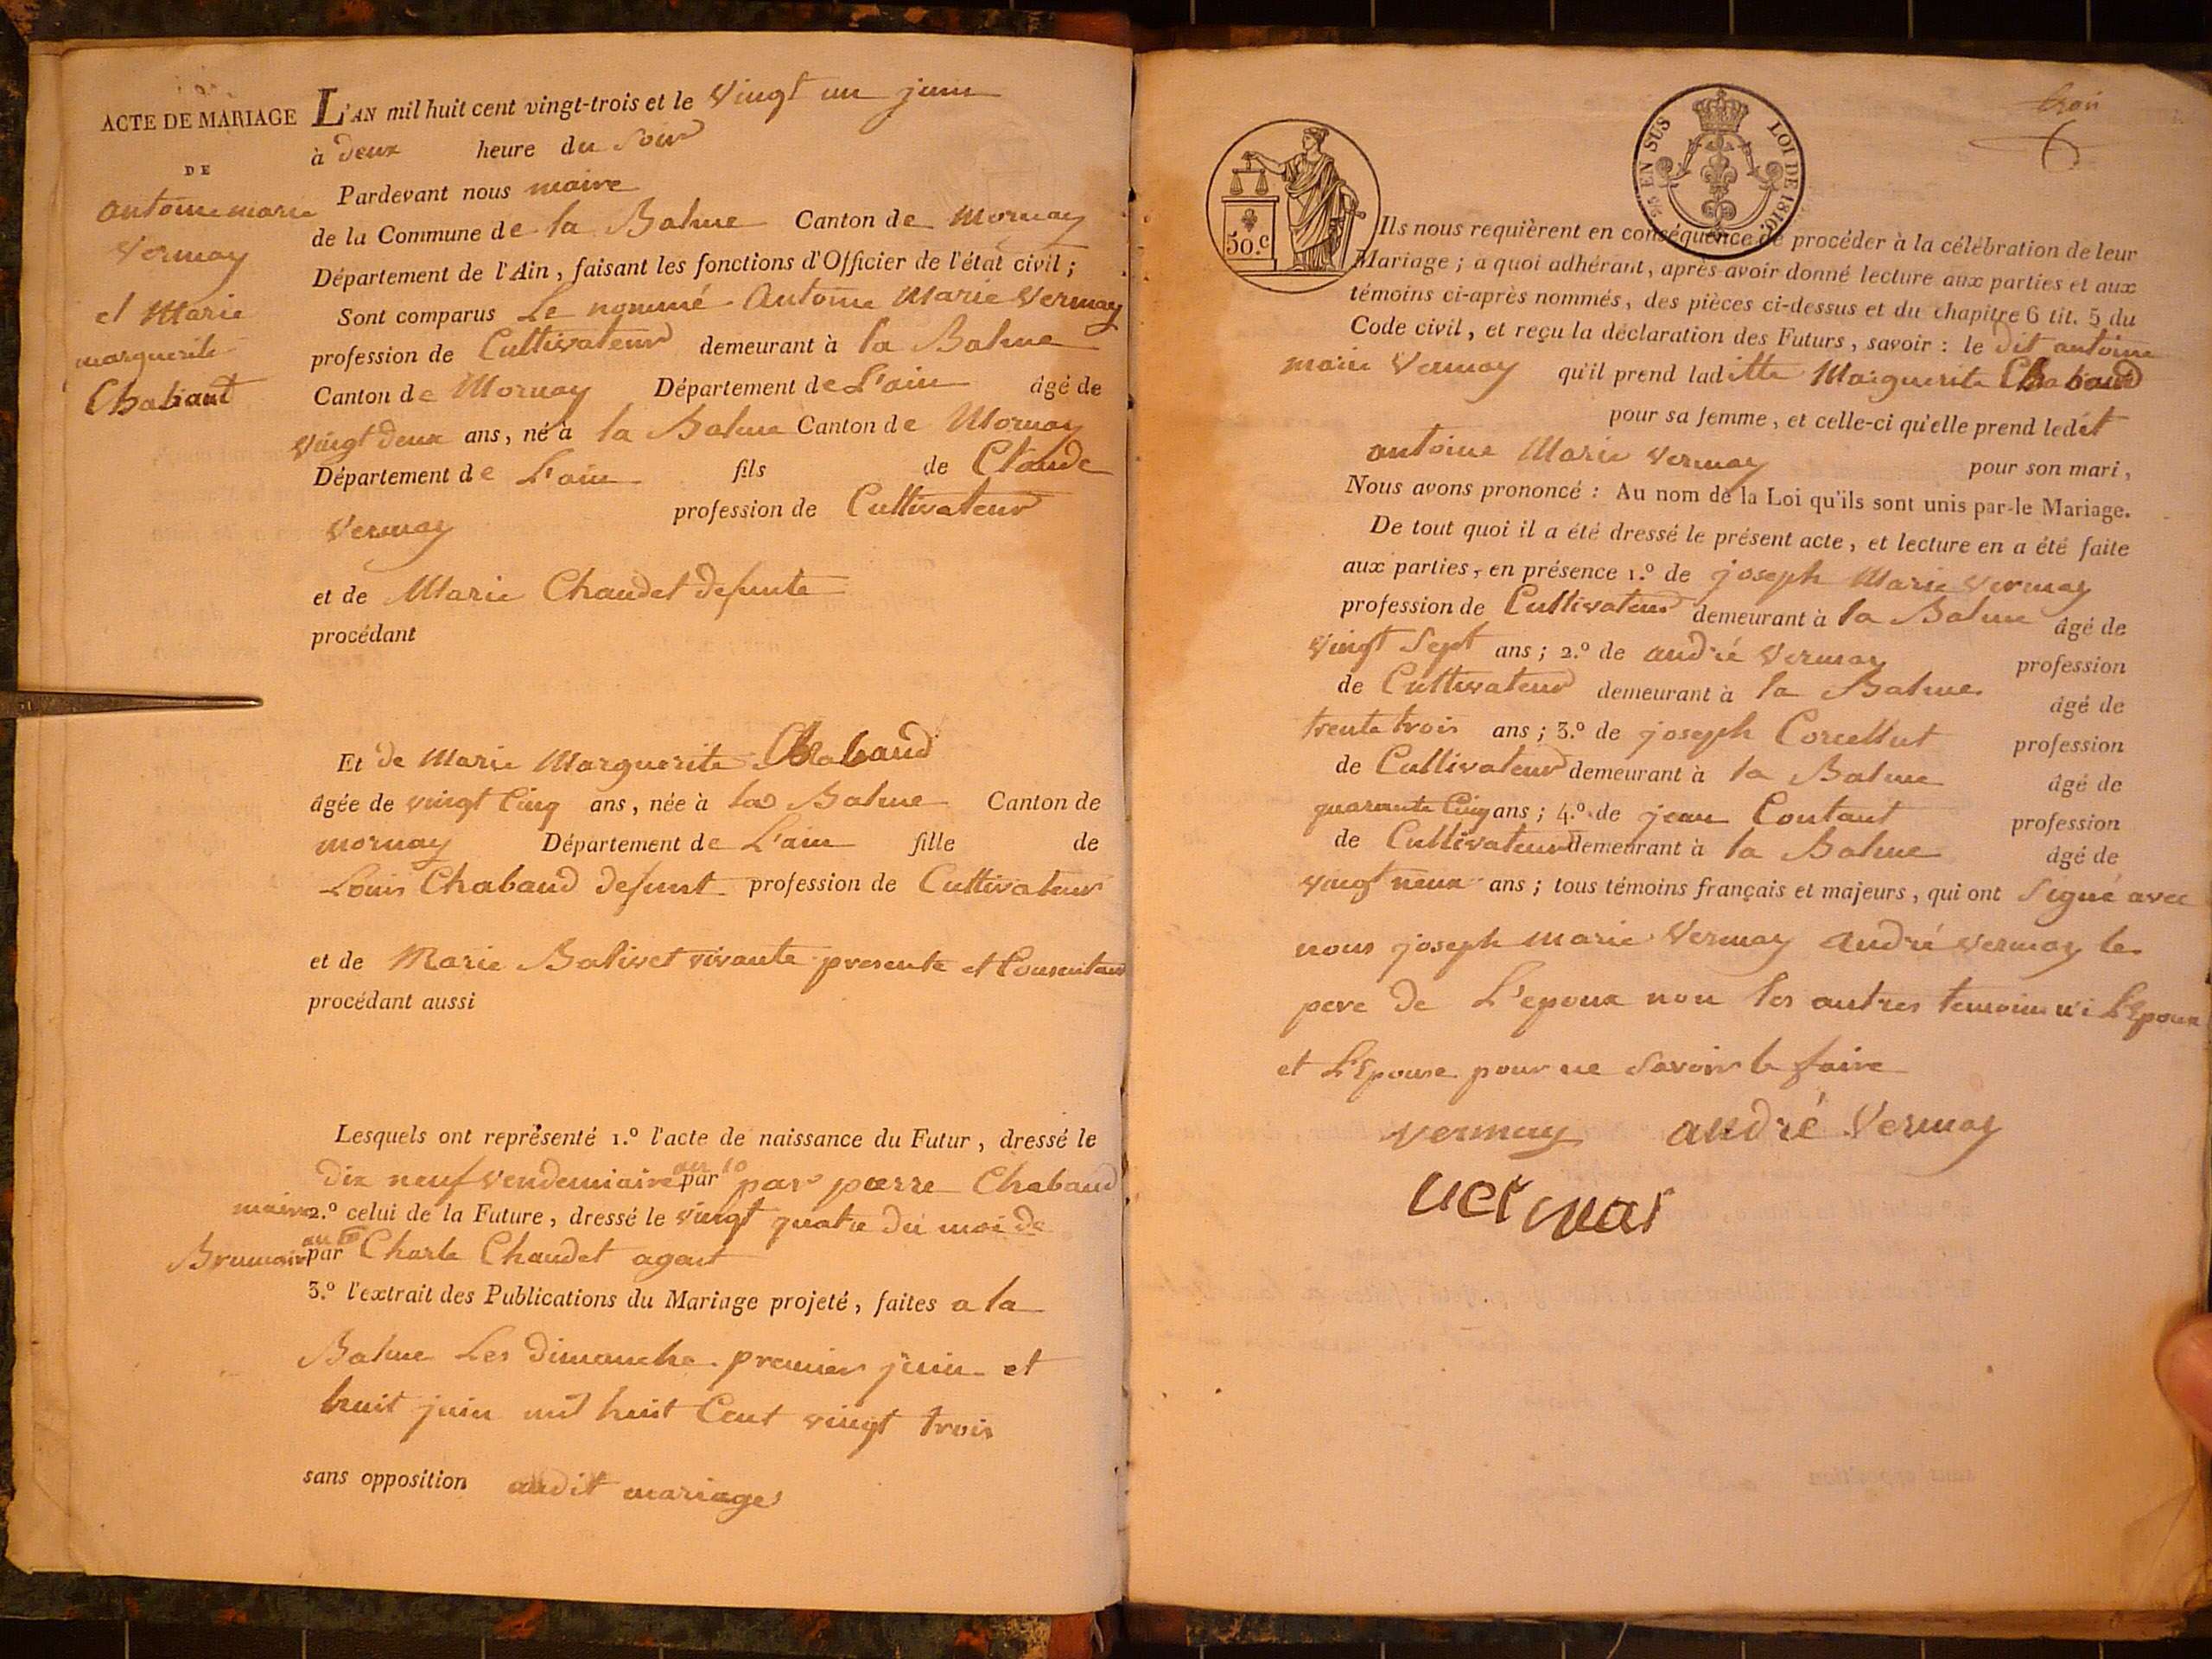 ACTE DE MARIAGE
DE
antoine marie
Vermay
et Marie
marguerite
Chabaut
L'AN mil huit cent vingt-trois et le Vingt un juin
à deux heure du Soir
Pardevant nous maire
de la Commune de la Balme Canton de Mornay
Département de l'Ain, faisant les fonctions d'Officier de l'état civil;
Sont comparus Le nommé Antoine Marie Vermay
profession de Cultivateur demeurant à la Balme
Canton de Mornay Département de L'ain âgé de
vingt deux ans, né à la Balme Canton de Mornay
Département de L'ain fils de Claude
Vermay profession de Cultivateur
et de Marie Chaudet defunte
procédant
Et de Marie Marguerite Chabaud
âgée de vingt Cinq ans, née à la Balme Canton de
mornay Département de L'ain fille de
Louis Chabaud defunt profession de Cultivateur
et de Marie Balivet vivante presente et Consentant
procédant aussi
Lesquels ont représenté 1.º l'acte de naissance du Futur, dressé le
dix neuf vendemiaire an 10 par par pierre Chabaud
maire 2.º celui de la Future, dressé le vingt quatre du moi de
Brumaire an par Charle Chaudet agent
3.º l'extrait des Publications du Mariage projeté, faites a la
Balme Les dimanche premier juin et
huit juin mil huit Cent vingt trois
sans opposition audit mariage
50.c
EN SUS LOI DE 1816.
Ils nous requièrent en conséquence de procéder à la célébration de leur
Mariage; à quoi adhérant, après avoir donné lecture aux parties et aux
témoins ci-après nommés, des pièces ci-dessus et du chapitre 6 tit. 5 du
Code civil, et reçu la déclaration des Futurs, savoir: le dit antoine
marie Vermay qu'il prend laditte Marguerite Chabaud
pour sa femme, et celle-ci qu'elle prend ledit
antoine Marie Vermay pour son mari,
Nous avons prononcé: Au nom de la Loi qu'ils sont unis par-le Mariage.
De tout quoi il a été dressé le présent acte, et lecture en a été faite
aux parties, en présence 1.º de joseph Marie Vermay
profession de Cultivateur demeurant à la Balme âgé de
vingt Sept ans; 2.º de andré Vermay profession
de Cultivateur demeurant à la Balme âgé de
trente trois ans; 3.º de joseph Corcellut profession
de Cultivateur demeurant à la Balme âgé de
quarante Cinq ans; 4.º de jean Coutant profession
de Cultivateur demeurant à la Balme âgé de
vingt neux ans; tous témoins français et majeurs, qui ont Signé avec
nous joseph marie Vermay andré Vermay le
pere de L'epoux non les autres temoins ni L'Epoux
et L'Epouse pour ne Savoir le faire
vermay andré Vermay
vermai